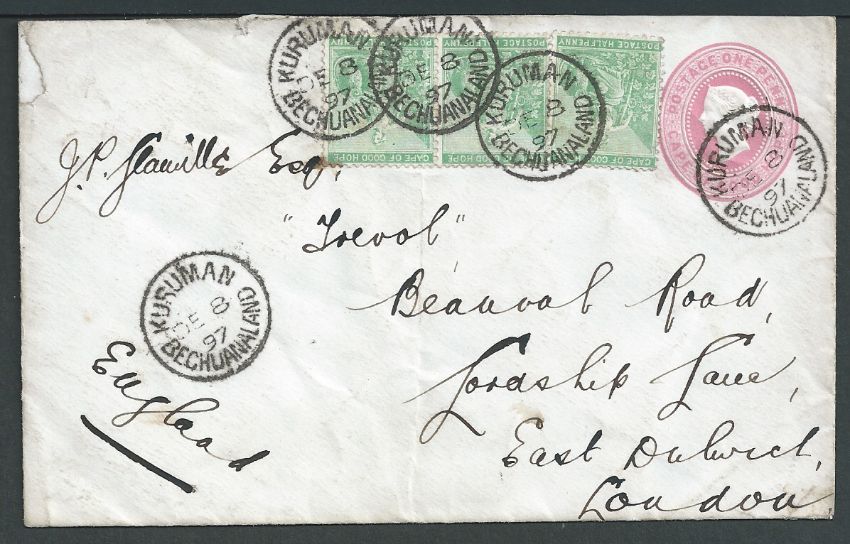 KURUMAN DE 8 97 BECHUANALAND
KURUMAN DE 8 97 BECHUANALAND
KURUMAN DE 8 97 BECHUANALAND
POSTAGE HALFPENNY
POSTAGE HALFPENNY
POSTAGE HALFPENNY
CAPE OF GOOD HOPE
CAPE OF GOOD HOPE
CAPE OF GOOD HOPE
POSTAGE ONE PENNY
KURUMAN DE 8 97 BECHUANALAND
J.P. Glanville Esq.,
"Trevol",
Beauval Road,
Lordship Lane,
East Dulwich,
London
KURUMAN DE 8 97 BECHUANALAND
England